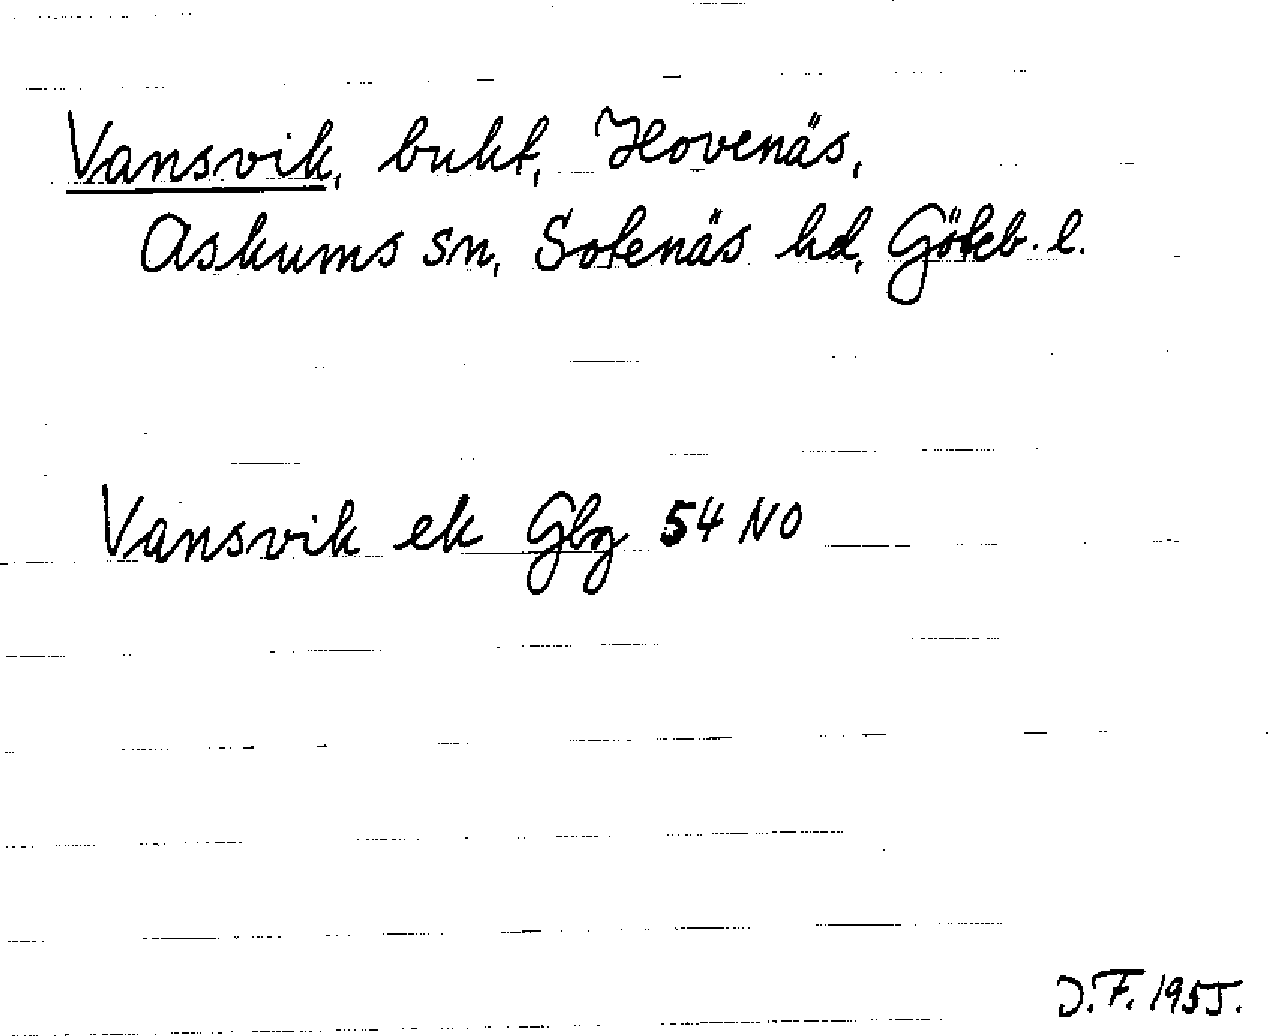 Vansvik, bukt, Hovenäs,
Askums sn, Sotenäs hd, Göteb. l.
Vansvik ek Gbg 54 NO
J.F. 1955.